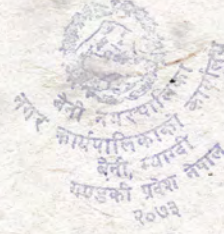 बेनी नगरपालिका
नगर कार्यपालिकाको कार्यालय
बेनी, म्याग्दी
गण्डकी प्रदेश नेपाल
२०७३